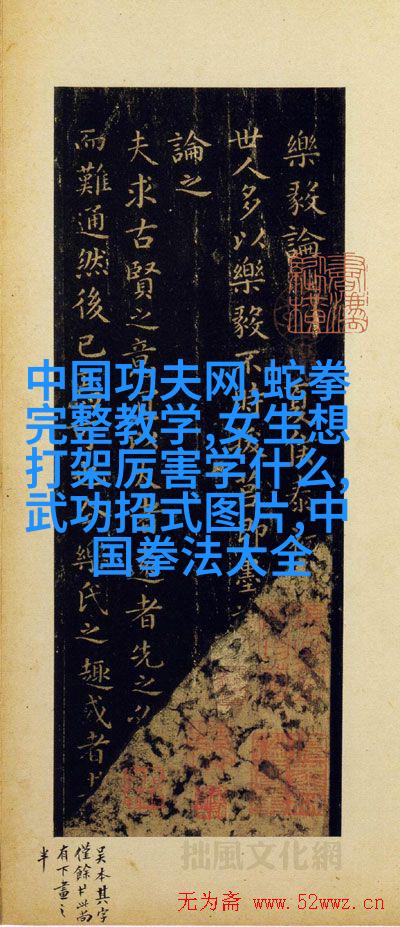 樂毅論
世人多以樂毅不時
論之
夫求古賢之意 者先之以
而難通然後已 樂氏之趣或者
中国功夫网,蛇拳
完整教学,女生想
打架厉害学什么,
武功招式图片,中
国拳法大全
吴本其字
僅餘 此尚
有下畫之
半
拙風文化網
无为斋 www.52wwz.cn